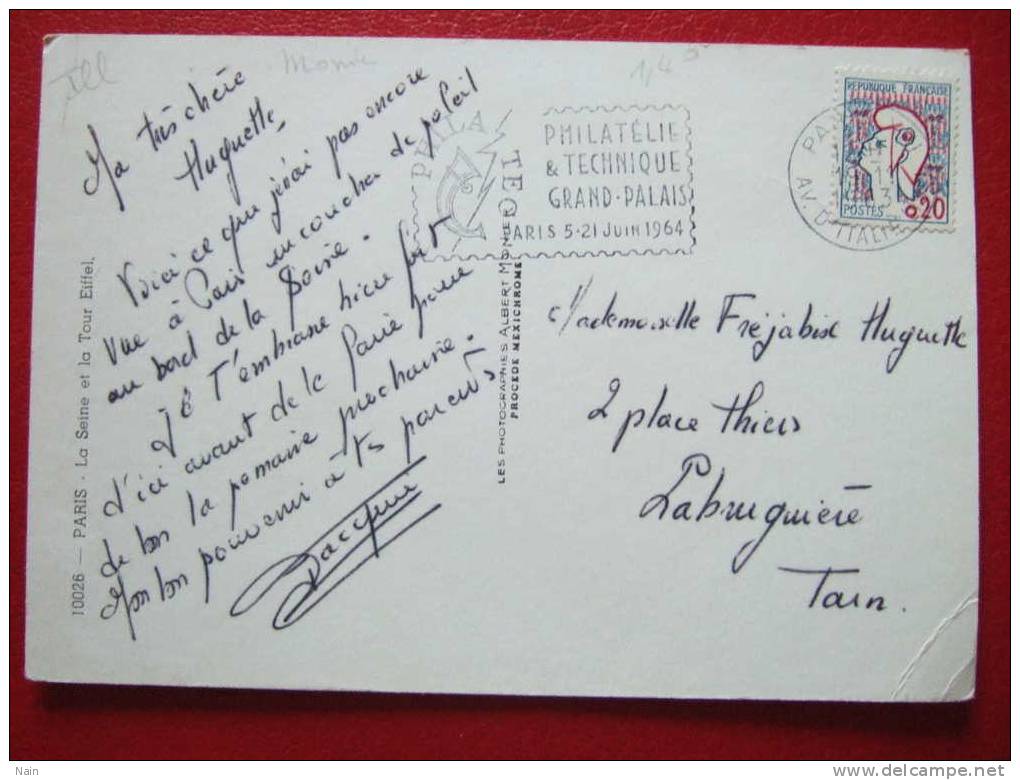 Ma très chère
Huguette,
Voici ce que j'ai pas encore
vue à Paris un coucher de soleil
au bord de la Seine.
Je t'embrasse bien fort
d'ici avant de le faire pour
de bon la semaine prochaine.
Mon bon souvenir à tes parents
Jacques
10026 — PARIS . La Seine et la Tour Eiffel.
LES PHOTOGRAPHIES ALBERT MONIER
PROCEDE MEXICHROME
PHILATEC
PHILATÉLIE
& TECHNIQUE
GRAND-PALAIS
PARIS 5-21 JUIN 1964
PA
AV. D'ITALIE
REPUBLIQUE FRANÇAISE
POSTES 0,20
Mademoiselle Fréjabise Huguette
2 place Thiers
Labruguière
Tarn.
Nain
www.delcampe.net